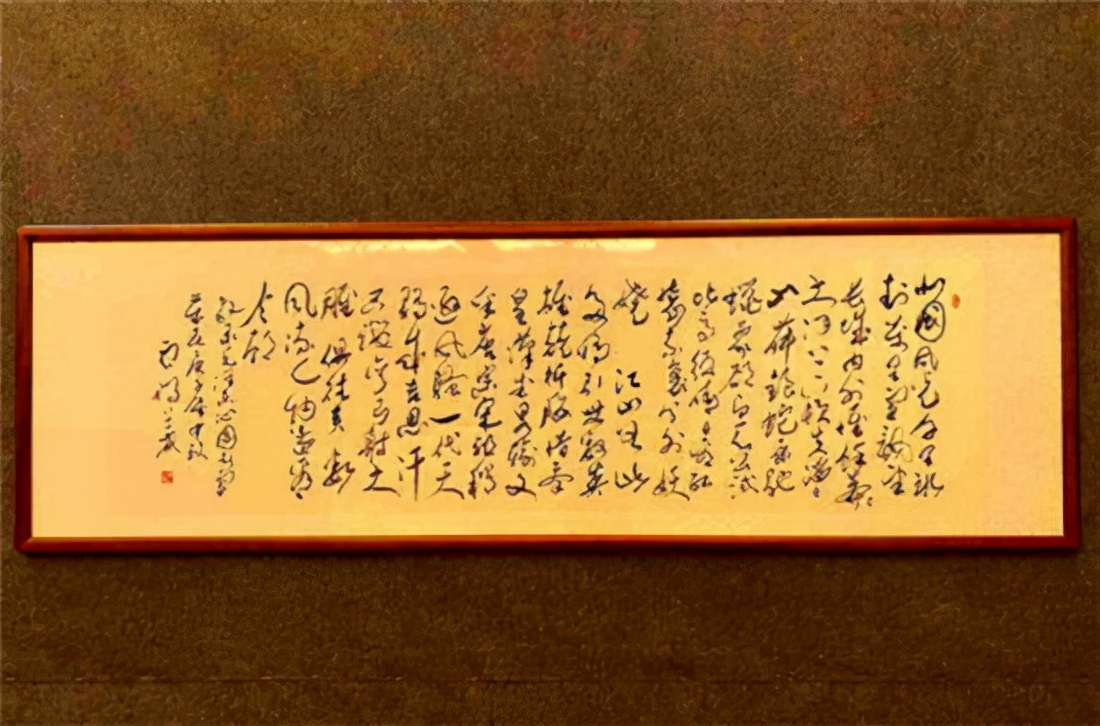 北國风光千里冰
封万里雪飘望
长城内外惟余莽莽
大河上下顿失滔滔
山舞银蛇原驰
蜡象欲与天公试
比高须晴日看红
装素裹分外妖
娆 江山如此
多娇引无数英
雄竞折腰惜秦
皇汉武略输文
采唐宗宋祖稍
逊风骚一代天
骄成吉思汗
只识弯弓射大
雕 俱往矣 数
风流人物还看
今朝
毛泽东沁园春雪
岁在庚子